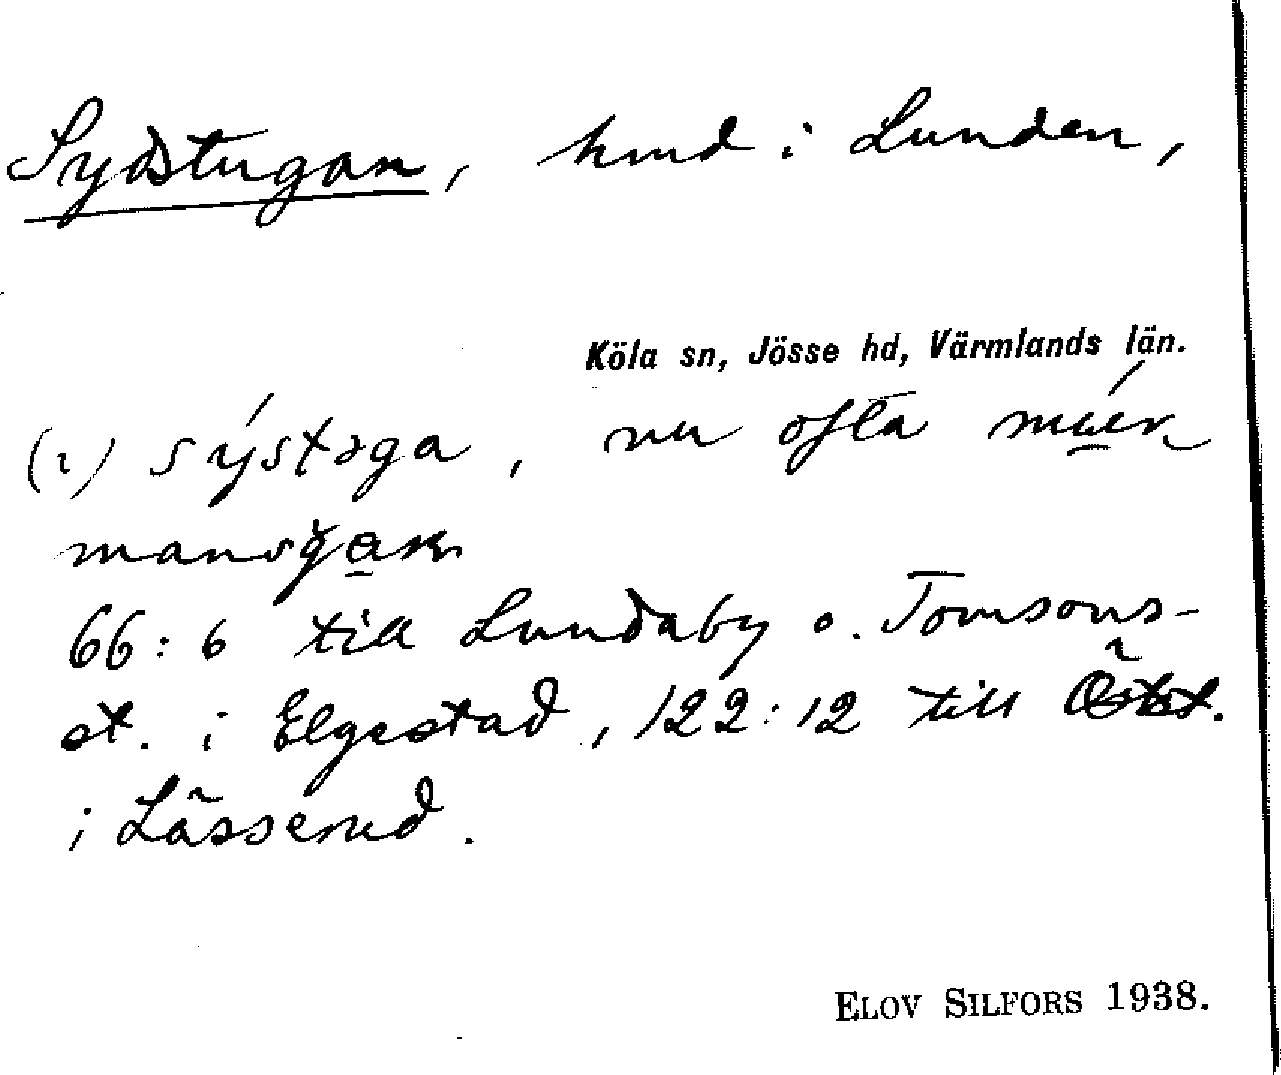 Sydstugan, hmd i Lunden,
Köla sn, Jösse hd, Värmlands län.
(i) sýstɔga, nu ofta
66:6 till Lundaby o. Tomsons-
st. i Elgestad, 122:12 till Östst.
i Lässerud.
ELOV SILFORS 1938.